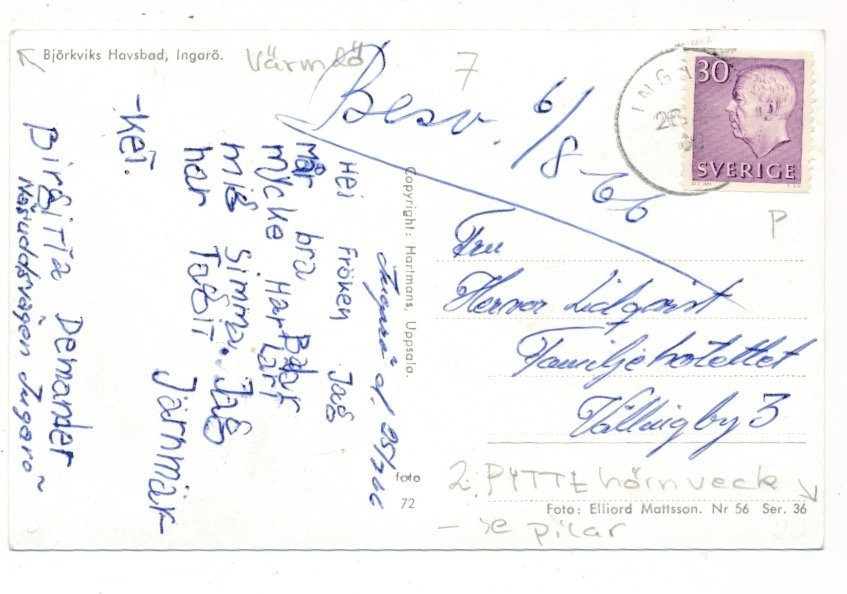 Björkviks Havsbad, Ingarö.
Värmdö
7
Besv. 6/8-66
INGA
30
SVERIGE
P
Fru
Herver Lidqvist
Familjehotellet
Vällingby 3
Copyright: Hartmans, Uppsala.
foto
72
Foto: Elliord Mattsson. Nr 56 Ser. 36
2 PYTTE hörnveck
- se pilar
Ingarö d. 25/7 66
Hej Fröken Jag
mår bra
mycke Har lärt
mig simma. Jag
har Tagit Järnmär-
-KET.
Birgitta Demander
Ingarö